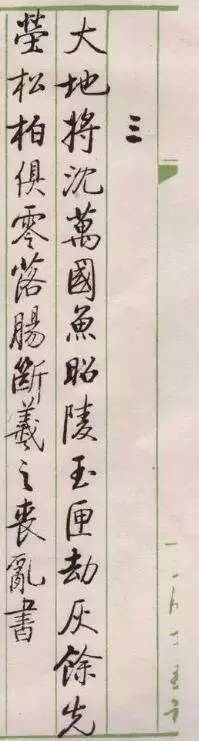 三
大地將沈萬國魚昭陵玉匣劫灰餘先
塋松柏俱零落腸斷羲之喪亂書